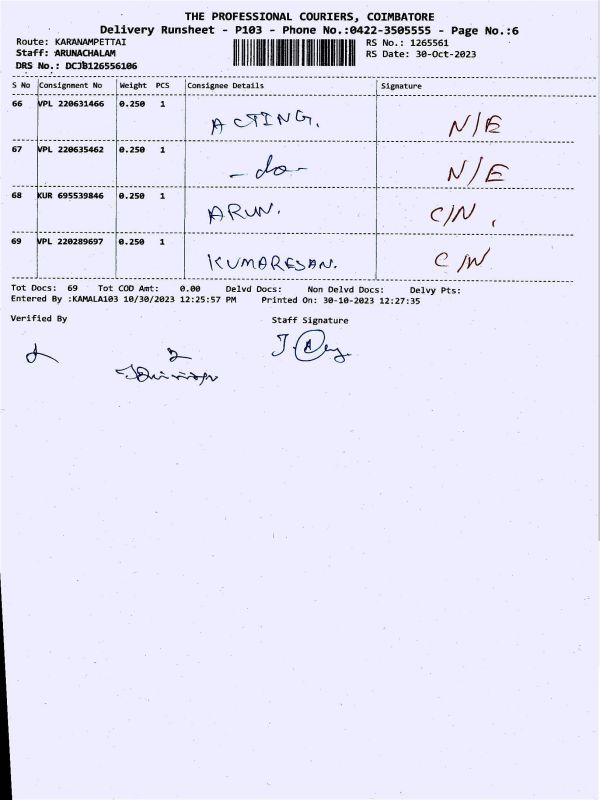 THE PROFESSIONAL COURIERS, COIMBATORE
Delivery Runsheet - P103 - Phone No.:0422-3505555 - Page No.:6
Route: KARANAMPETTAI RS No.: 1265561
Staff: ARUNACHALAM RS Date: 30-Oct-2023
DRS No.: DCJB126556106
S No Consignment No Weight PCS Consignee Details Signature
66 VPL 220631466 0.250 1 ACTING. N/E
67 VPL 220635462 0.250 1 -do- N/E
68 KUR 695539846 0.250 1 ARUN. C/N.
69 VPL 220289697 0.250 1 KUMARESAN. C/N
Tot Docs: 69 Tot COD Amt: 0.00 Delvd Docs: Non Delvd Docs: Delvy Pts:
Entered By :KAMALA103 10/30/2023 12:25:57 PM Printed On: 30-10-2023 12:27:35
Verified By Staff Signature